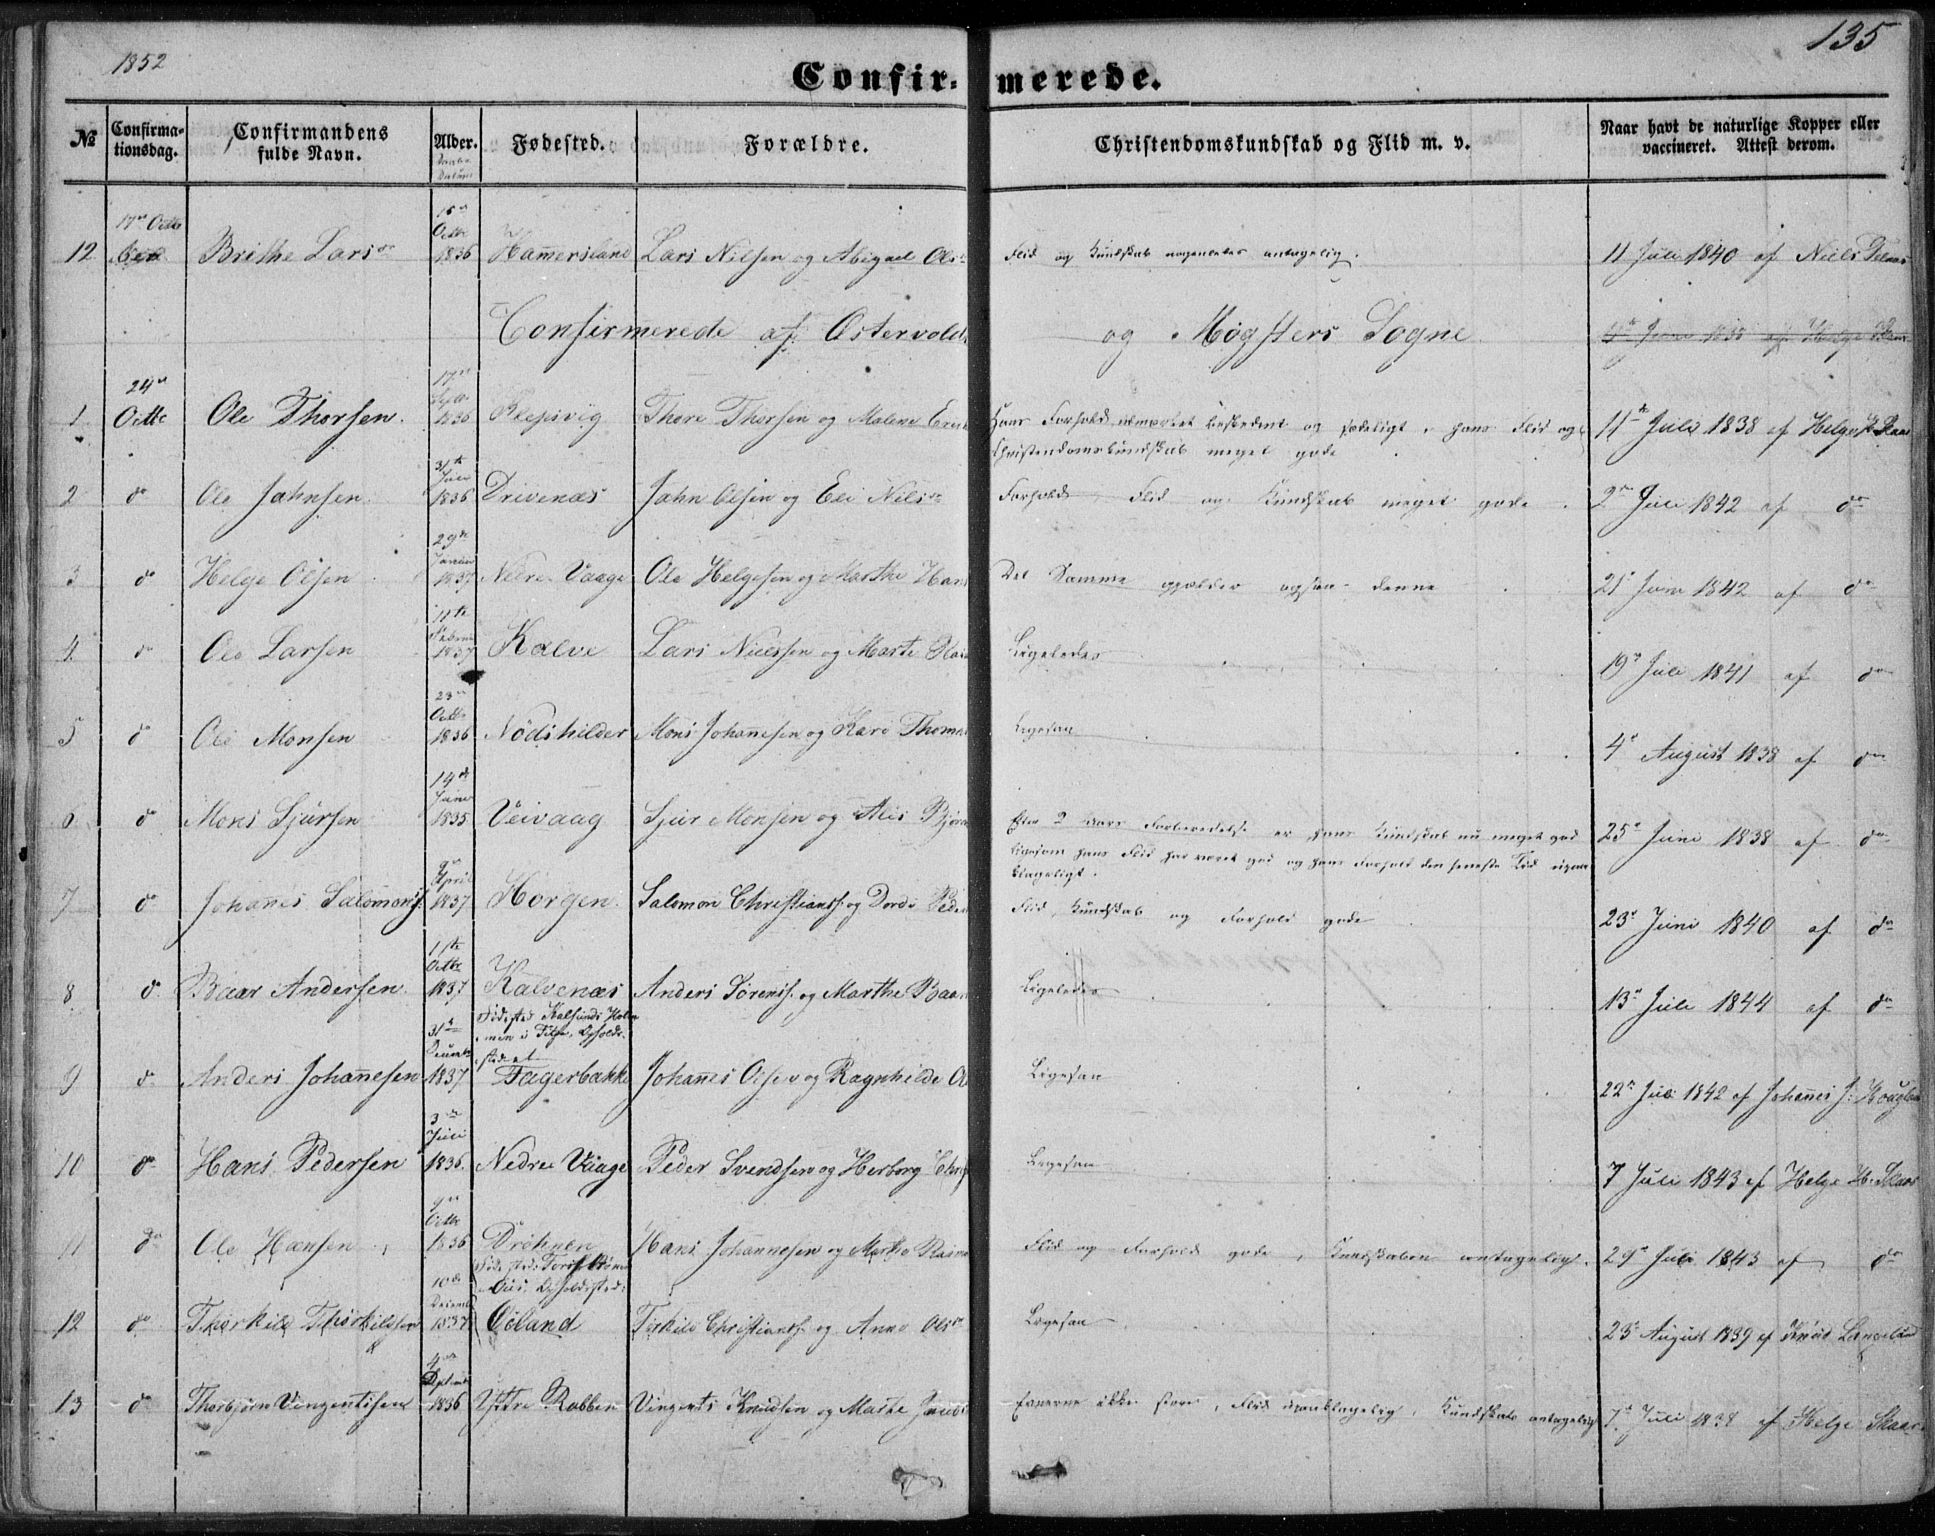 1852
135
Confir= merede.
№ Confirma=tionsdag. Confirmandens fulde Navn. Alder. Daabs Datum Fødested. Forældre. Christendomskundskab og Flid m. v. Naar havt de naturlige Kopper eller vaccineret. Attest derom.
12 17de Octbr Brithe Larsdr 15de Octbr 1836 Hamersland Lars Nilsen og Abigael Olsdr Flid og Kundskab nogenledes antagelig. 11 Juli 1840 af Niels
Confirmerede af Østervolds og Møgsters Sogne
1 24de Octbr Ole Thorsen. 17de Septbr 1836 Klepsvig Thore Thorsen og Malene Hans Forhold udmærket beskedent og sædeligt, hans Flid og 11te Juli 1838 af Helge H. Skaar
Christendomskundskab meget gode
2 do Ole Jahnsen 31te Juli 1836 Drivenæs Jahn Olsen og Eli Nilsdr Forhold, Flid og Kundskab meget gode. 2den Juli 1842 af do
3 do Helge Olsen 29de Januar 1837 Nedre Vaage Ole Helgesen og Marthe Hans Det Samme gjælder ogsaa denne 21 Juni 1842 af do
4 do Ole Larsen 11te Febru 1837 Kalve Lars Nielssen og Marte Ligeledes 19de Juli 1841 af do
5 do Ole Monsen 23de Octbr 1836 Nødshilder Mons Johannesen og Kari Thomas Ligesaa 4de August 1838 af do
6 do Mons Sjursen 14de Juni 1835 Veivaag Sjur Monsen og Alis Bjørn Efter 2 Aars Forberedelse er hans Kundskab nu meget god 25de Juni 1838 af do
ligesom hans Flid har været god og hans Forhold den seneste Tid upaa
klageligt.
7 do Johannes Salomons. 9de April 1837 Horgen Salomon Christians. og Dorde Peder Flid, Kundskab og Forhold gode 23de Juni 1840 af do
8 do Baar Andersen 1ste Octbr 1837 Kalvenæs Anders Sørens. og Marthe Baar Ligeledes 13de Juli 1844 af do
9 do Anders Johannesen 31te 1837 Fødested Kalsunds Holmen i Fitje, Opholdsstedet Fagerbakke Johannes Olsen og Ragnhilde Ligesaa 22de Juli 1842 af Johannes J.
10 do Hans Pedersen 3die Juli 1836 Nedre Vaage Peder Svendsen og Herborg Chr Ligesaa 7 Juli 1843 af Helge H. Skaar
11 do Ole Hansen 9de Octbr 1836 Drøhnen Hans Johannesen og Marthe Flid og Forhold gode, Kundskaben antagelig. 29de Juli 1843 af do
12 do Thorkild Thorkildsen 10de Decemb 1837 Øeland Torkild Christians. og Anna Olsdr Ligesaa 23de August 1839 af Knud Langeland
13 do Thorbjørn Vingentsen 4de Septemb 1836 Yttre Rabben Vingents Knudsen og Marthe Evnerne ikke store, Flid upaaklagelig, Kundskab antagelig 7de Juli 1838 af Helge Skaar